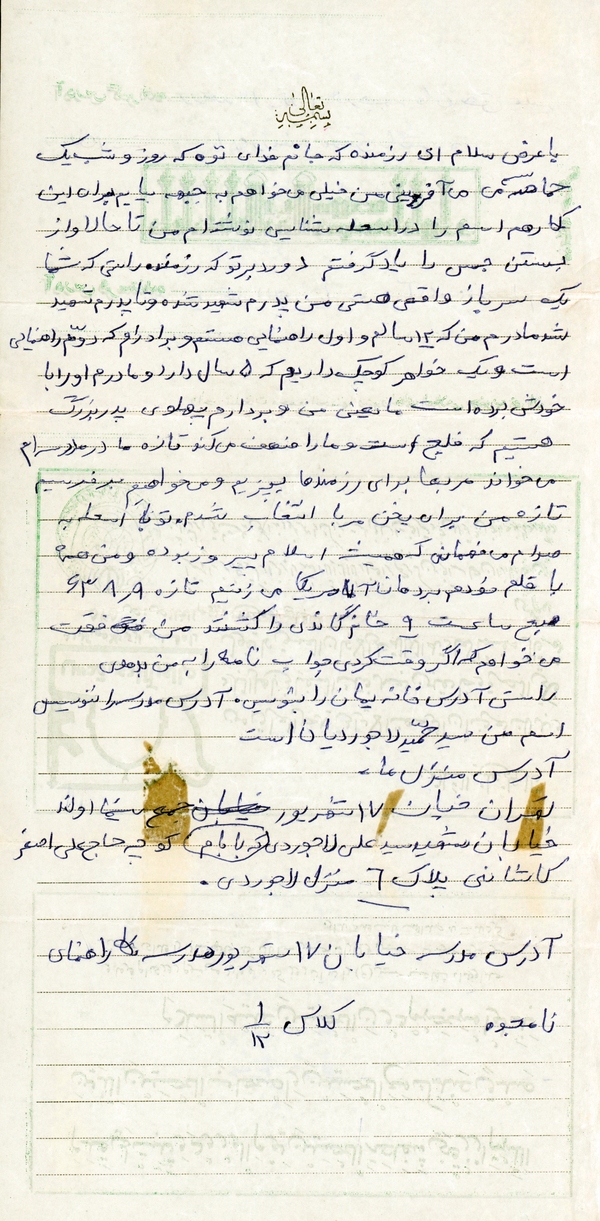 بسمه تعالی
با عرض سلام ای رزمنده که جانم فدای توه که روز و شب یک
حماسه‌ی می‌آفرینی من خیلی می‌خواهم به جبهه بیایم برای این
کار هم اسم را در اسلحه شناسی نوشته‌ام من تا حالا باز و
بستن را یاد گرفتم درود بر تو که رزمنده راستی که شما
یک سرباز واقعی هستی من پدرم شهید شده و تا پدرم شهید
شد مادرم من که ۱۲ سالم و اول راهنمایی هستم و برادرم که دوّم راهنمایی
است و یک خواهر کوچک داریم که ۵ سال دارد و مادرم او را با
خودش برده است ما یعنی من و برادرم پهلوی پدربزرگ
هستیم که فلج است و ما را می‌کند تازه ما در مدرسه‌ام
می‌خواند مربا برای رزمنده‌ها بپزیم و می‌خواهیم بفرستیم
تازه من برای پختن مربا انتخاب شدم تو با اسلحه به
صدام می‌فهمانی که همیشه اسلام پیروز بوده و من هم
با قلم خودم بر دهان آمریکا می‌زنیم تازه ۶۳٫۸٫۹
صبح ساعت ۹ خانم گاندی را کشتند من فقط
می‌خواهم که اگر وقت کردی جواب نامه را به من بدهی
راستی آدرس خانه یمان را بنویس. آدرس مدرسه را ننویس
اسم من سید حمید لاجوردیان است
آدرس منزل ما،
تهران خیابان ۱۷ شهریور سینما اولد
خیابان شهید سید علی لاجوردی (که بابام) کوچه حاج علی اصغر
کاشانی پلاک ۶ منزل لاجوردی.
آدرس مدرسه خیابان ۱۷ شهریور مدرسه راهنمای
نامجوه کلاس ۱/۳